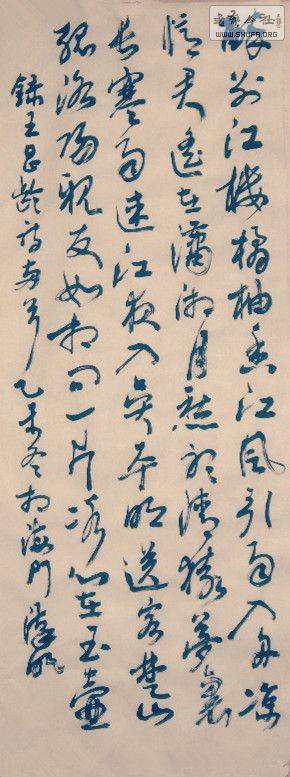 醉别江樓橘柚香江風引雨入舟凉
憶君遙在瀟湘月愁聽清猿夢裏
長寒雨連江夜入吳平明送客楚山
孤洛陽親友如相問一片冰心在玉壺
錄王昌齡詩兩首乙未冬於海門